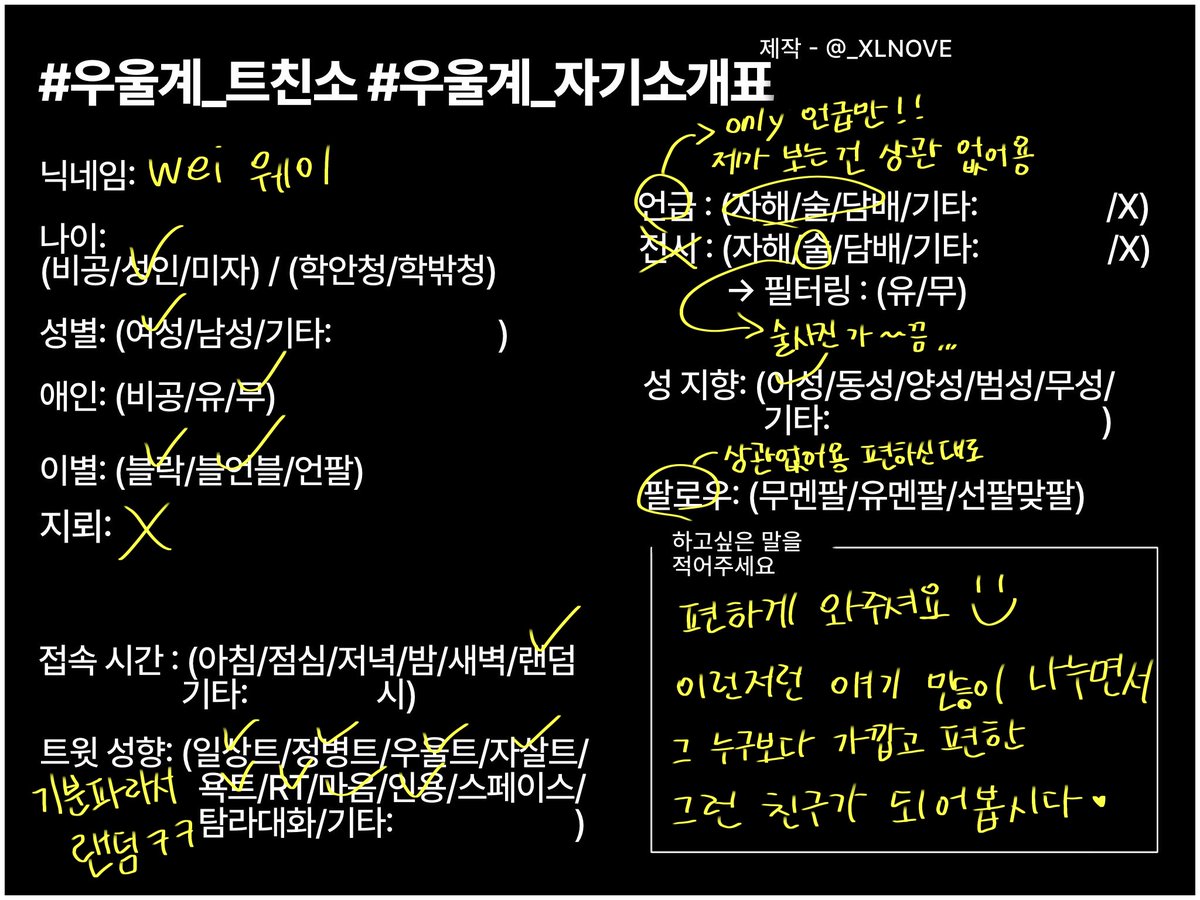 제작 - @_XLNOVE
#우울계_트친소 #우울계_자기소개표
닉네임: wei 웨이
나이:
(비공/성인/미자) / (학안청/학밖청)
성별: (여성/남성/기타: )
애인: (비공/유/무)
이별: (블락/블언블/언팔)
지뢰: X
접속 시간 : (아침/점심/저녁/밤/새벽/랜덤
기타: 시)
트윗 성향: (일상트/정병트/우울트/자살트/
욕트/RT/마음/인용/스페이스/
탐라대화/기타: )
기분파라서
랜덤ㅋㅋ
only 언급만!!
제가 보는건 상관 없어용
언급 : (자해/술/담배/기타: /X)
전시 : (자해/술/담배/기타: /X)
→ 필터링 : (유/무)
술사진 가~끔...
성 지향: (이성/동성/양성/범성/무성/
기타: )
상관없어용 편하신대로
팔로우: (무멘팔/유멘팔/선팔맞팔)
하고싶은 말을
적어주세요
편하게 와주셔요
이런저런 얘기 많이 나누면서
그 누구보다 가깝고 편한
그런 친구가 되어봅시다♥